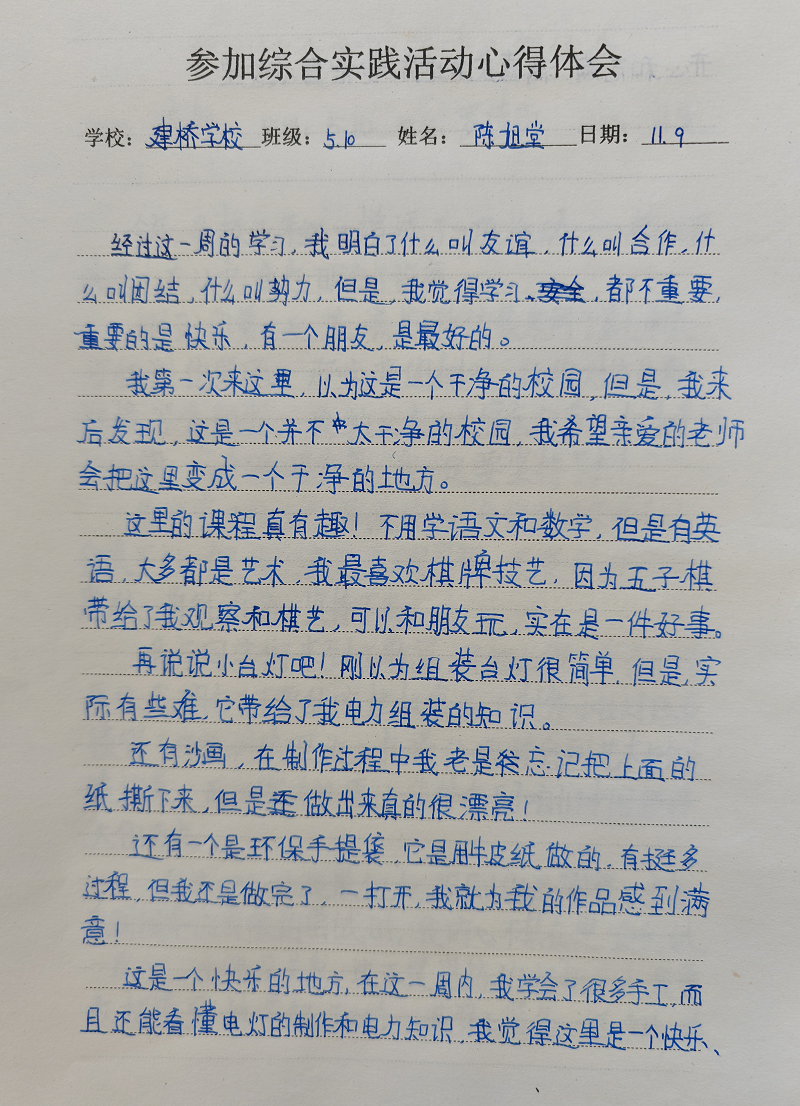 参加综合实践活动心得体会
学校：建桥学校 班级：5.10 姓名：陈旭堂 日期：11.9
经过这一周的学习，我明白了什么叫友谊，什么叫合作，什
么叫团结，什么叫努力，但是，我觉得学习、安全，都不重要，
重要的是快乐，有一个朋友，是最好的。
我第一次来这里，以为这是一个干净的校园，但是，我来
后发现，这是一个并不太干净的校园，我希望亲爱的老师
会把这里变成一个干净的地方。
这里的课程真有趣！不用学语文和数学，但是有英
语，大多都是艺术，我最喜欢棋牌技艺，因为五子棋
带给了我观察和棋艺，可以和朋友玩，实在是一件好事。
再说说小台灯吧！刚以为组装台灯很简单，但是，实
际有些难，它带给了我电力组装的知识。
还有沙画，在制作过程中我老是忘记把上面的
纸撕下来，但是还做出来真的很漂亮！
还有一个是环保手提袋，它是用牛皮纸做的，有挺多
过程，但我还是做完了，一打开，我就为我的作品感到满
意！
这是一个快乐的地方，在这一周内，我学会了很多手工，而
且还能看懂电灯的制作和电力知识，我觉得这里是一个快乐、